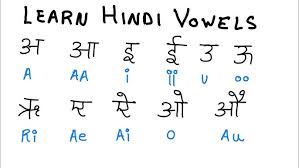 LEARN HINDI VOWELS
अ आ इ ई उ ऊ
A AA i ii U oo
ऋ ए ऐ ओ औ
Ri Ae Ai O Au